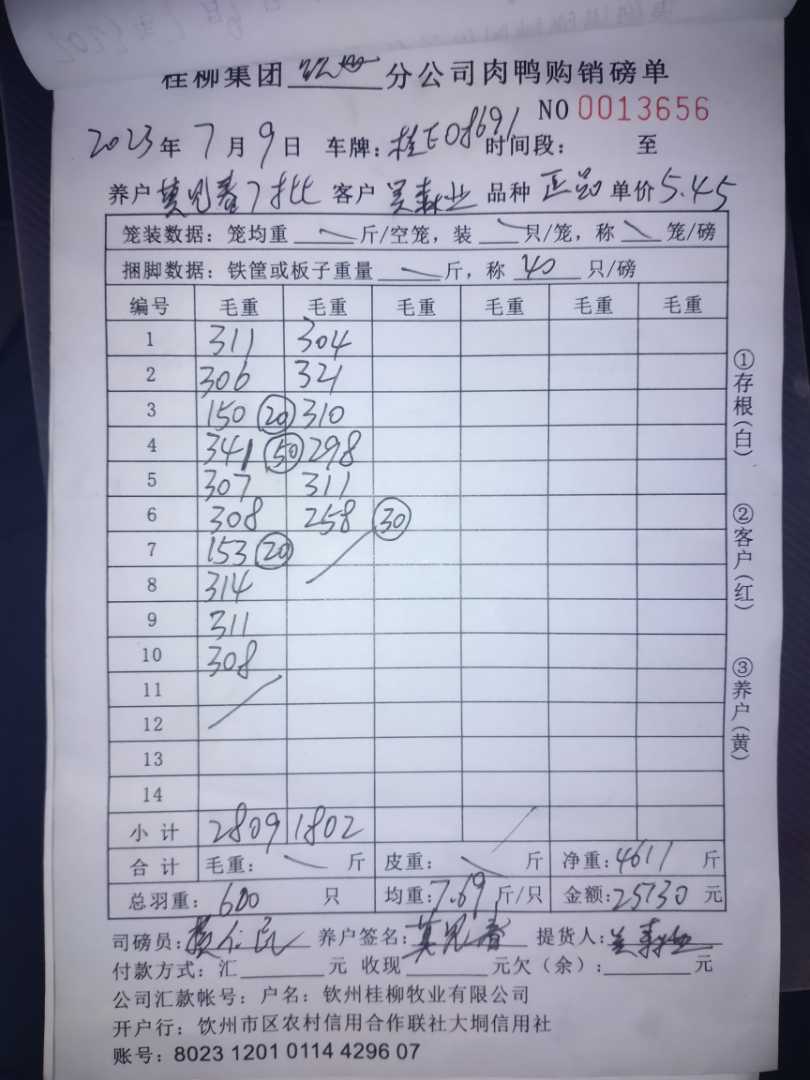 桂柳集团 钦州 分公司肉鸭购销磅单
NO 0013656
2023年7月9日 车牌:桂E08691 时间段: 至
养户 莫兄春7批 客户 吴森业 品种 正品 单价 5.45
笼装数据: 笼均重 斤/空笼, 装 只/笼, 称 笼/磅
捆脚数据: 铁筐或板子重量 斤, 称 40 只/磅
编号 毛重 毛重 毛重 毛重 毛重 毛重
1 311 304
2 306 321
3 150 20 310
4 341 50 298
5 307 311
6 308 258 30
7 153 20
8 314
9 311
10 308
11
12
13
14
小计 2809 1802
合计 毛重: 斤 皮重: 斤 净重:4611 斤
总羽重: 600 只 均重:7.69斤/只 金额:25130元
司磅员: 养户签名:莫兄春 提货人:吴森业
付款方式: 汇 元 收现 元欠(余): 元
公司汇款帐号: 户名: 钦州桂柳牧业有限公司
开户行: 饮州市区农村信用合作联社大垌信用社
账号: 8023 1201 0114 4296 07
①存根(白)
②客户(红)
③养户(黄)